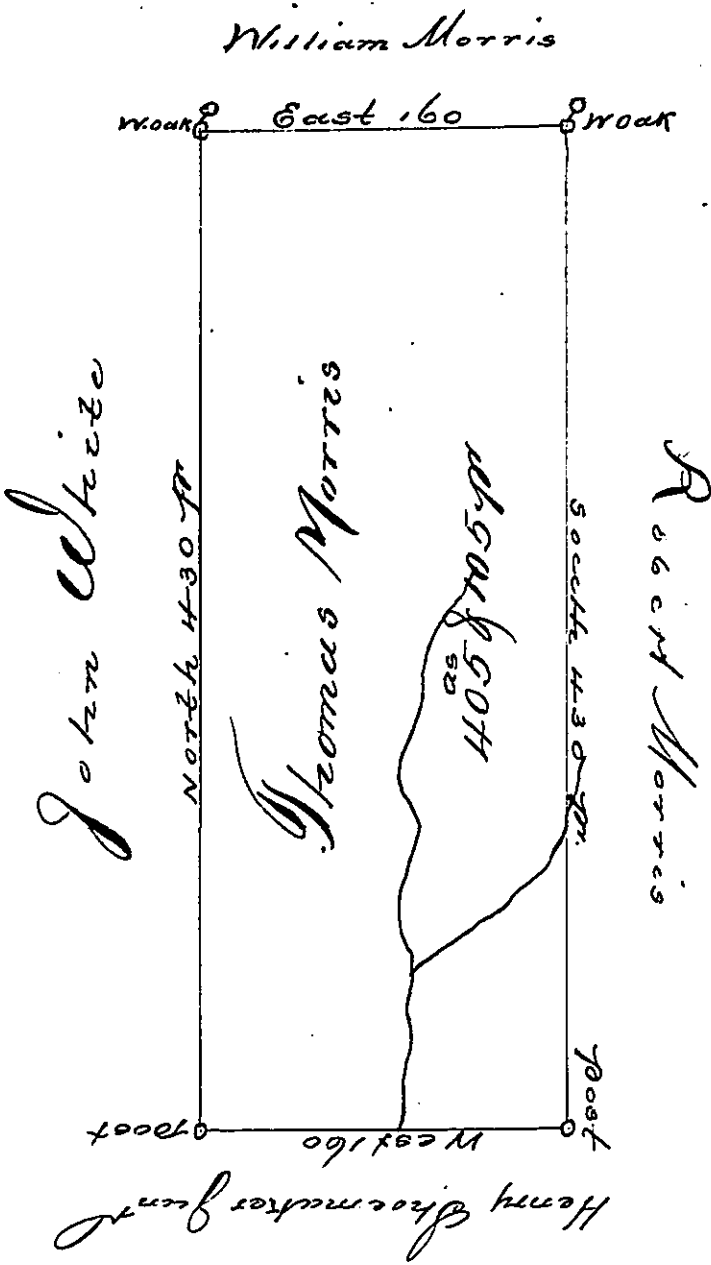 William Morris
W.oak East 160 W oak
John White
North 430 pr
Thomas Morris
South 430 pr.
Robert Morris
post West 160 post
Henry Shoemaker Junr